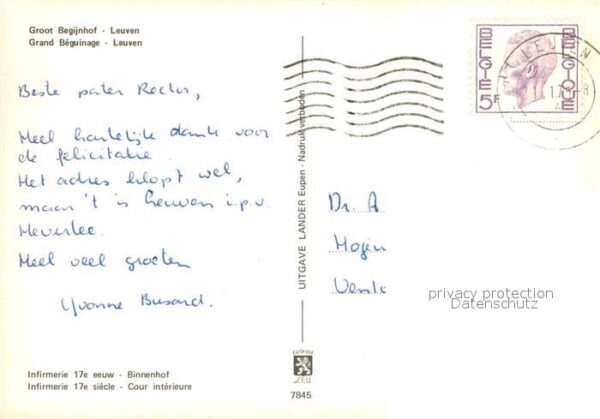 Groot Begijnhof - Leuven
Grand Béguinage - Leuven
Beste pater Rector,
Heel hartelijk dank voor
de felicitatie.
Het adres klopt wel,
maar 't is Leuven i.p.v.
Heverlee.
Heel veel groeten
Yvonne Busard.
Infirmerie 17e eeuw - Binnenhof
Infirmerie 17e siècle - Cour intérieure
UITGAVE LANDER Eupen - Nadruk verboden
7845
BELGIE
BELGIQUE
5F
LEUVEN
Dr. A
privacy protection
Datenschutz